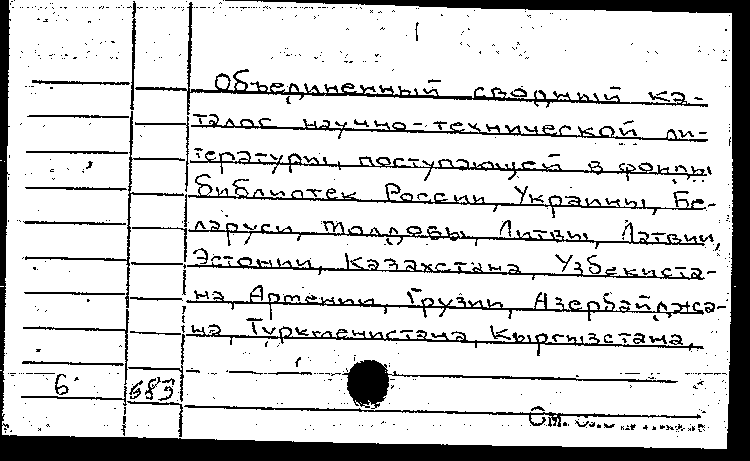 Объединенный сводный ка-
талог научно-технической ли-
тературы, поступающей в фонды
библиотек России, Украины, Бе-
ларуси, Молдовы, Литвы, Латвии,
Эстонии, Казахстана, Узбекиста-
на, Армении, Грузии, Азербайджа-
на, Туркменистана, Кыргызстана,
6
См.